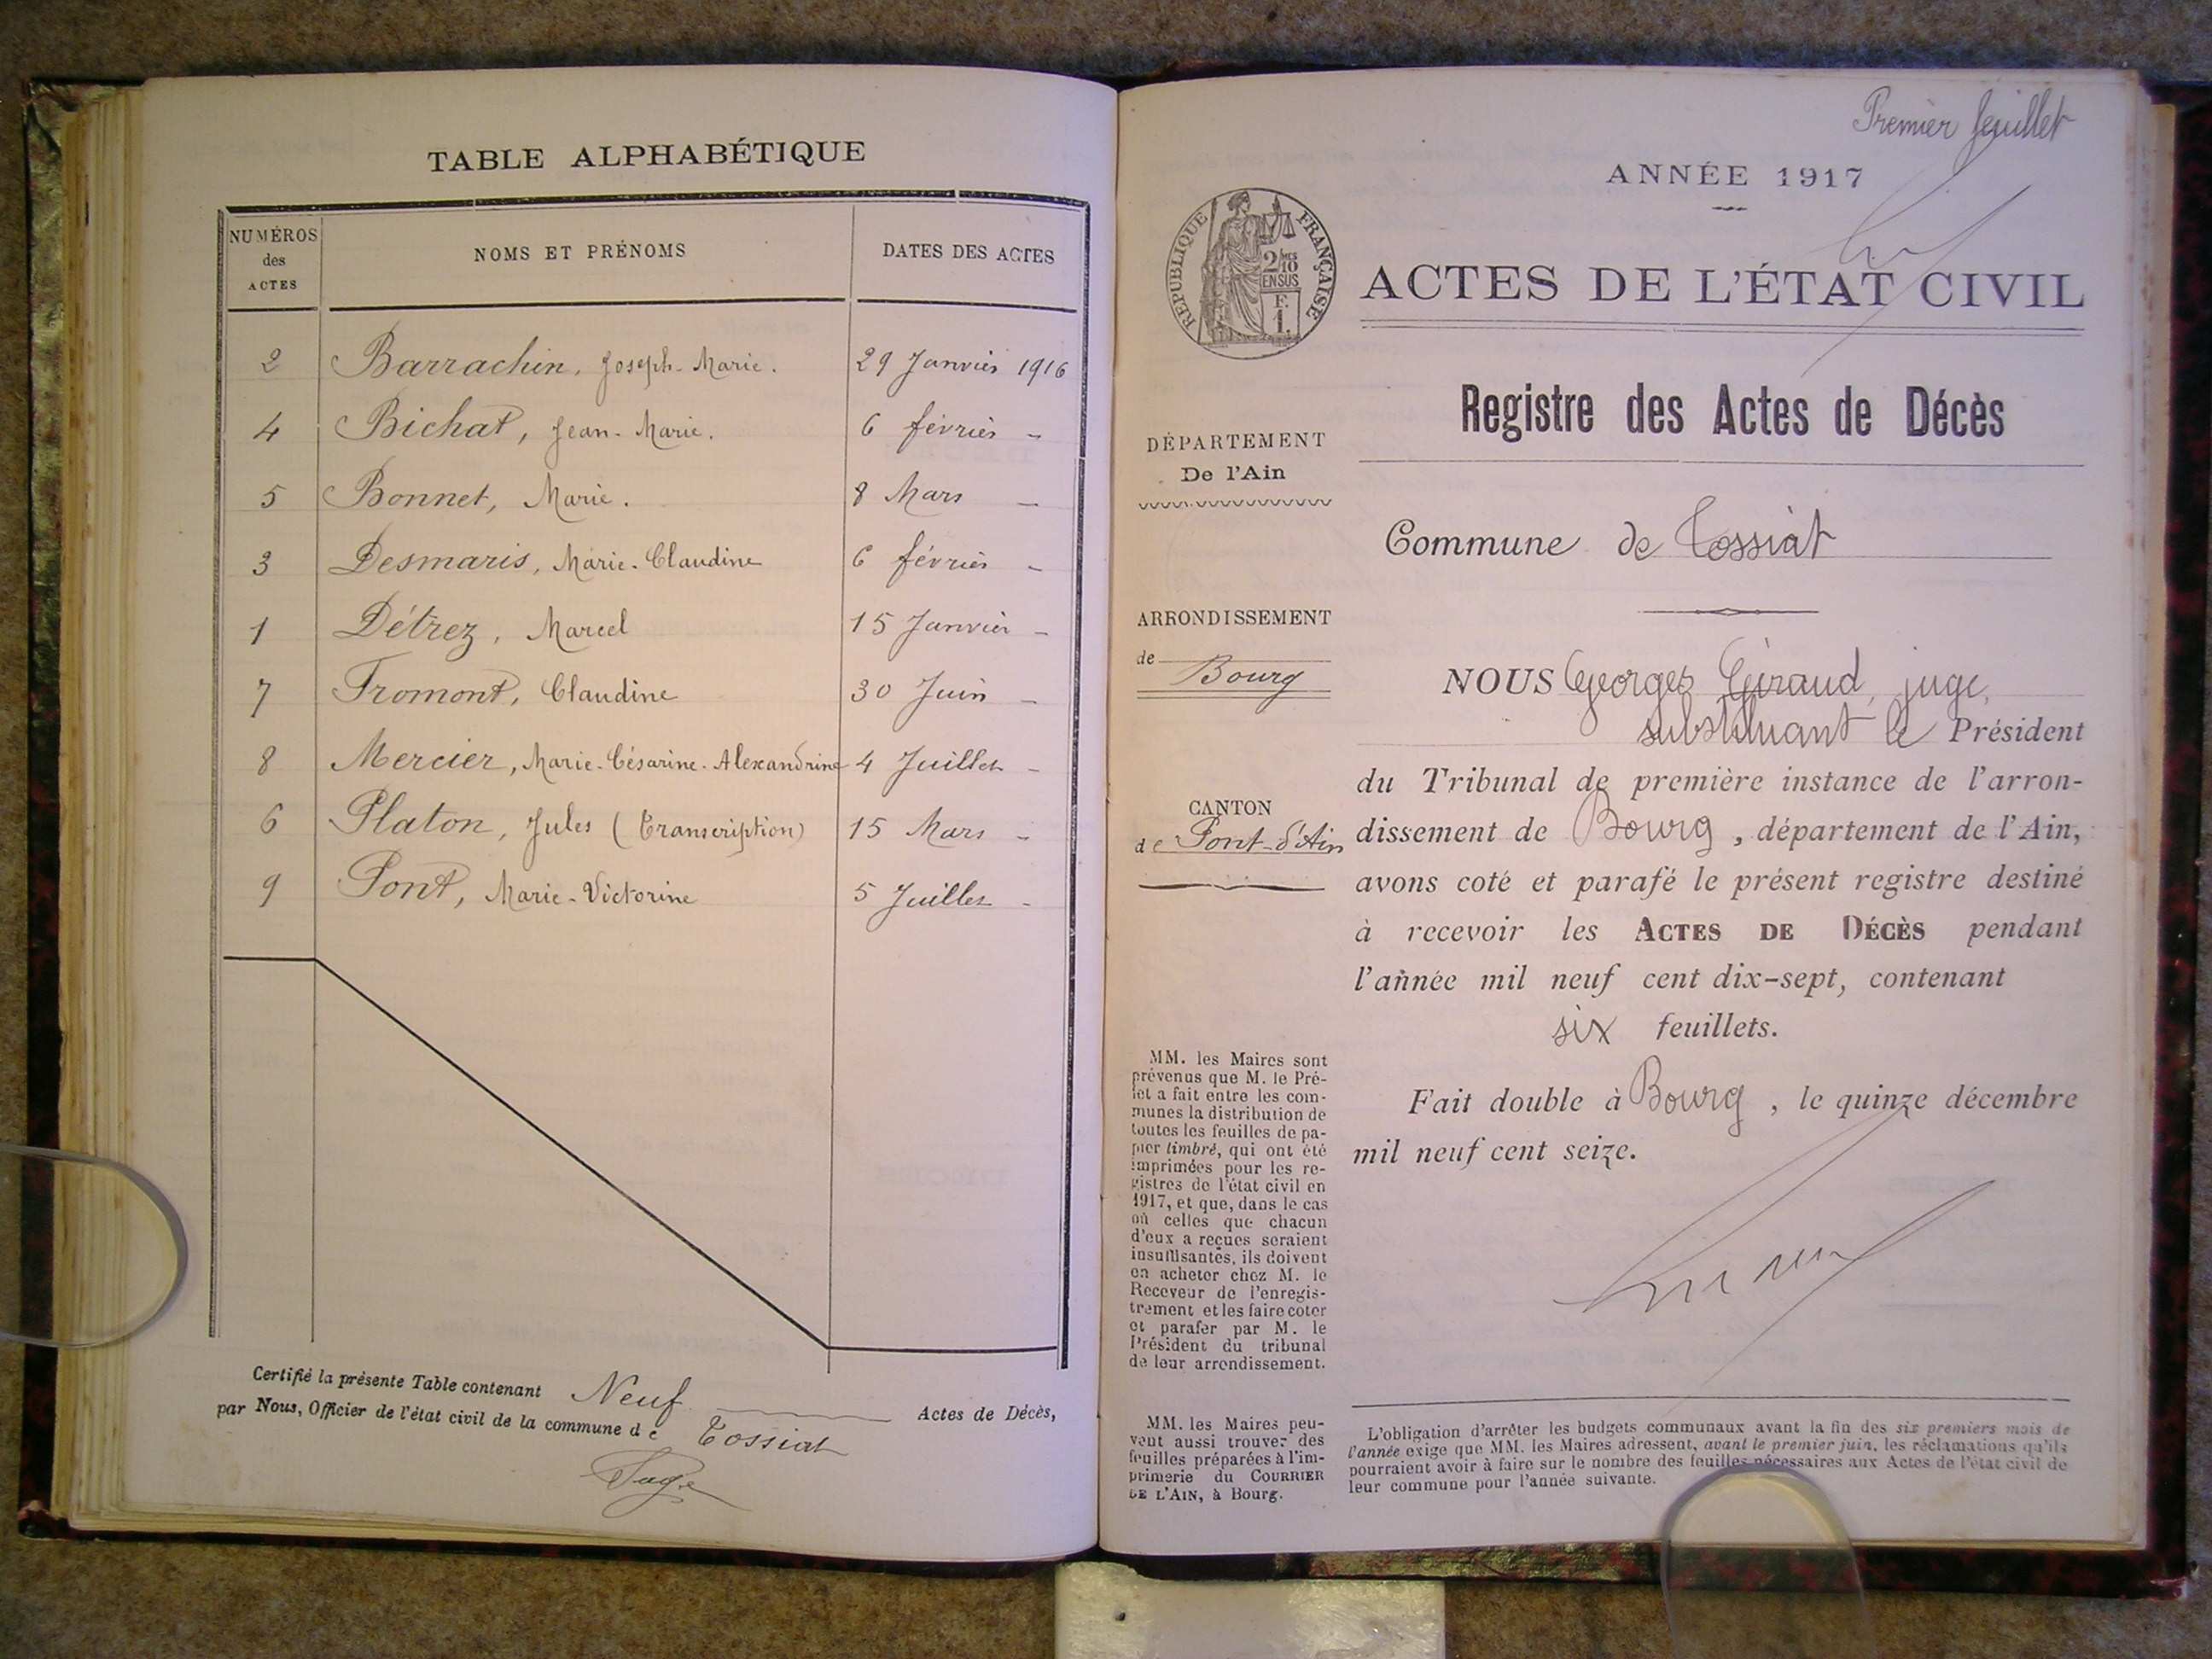 TABLE ALPHABÉTIQUE
NUMÉROS des ACTES
NOMS ET PRÉNOMS
DATES DES ACTES
2 Barrachin, Joseph-Marie. 29 Janvier 1916
4 Bichat, Jean-Marie. 6 février -
5 Bonnet, Marie. 8 Mars -
3 Desmaris, Marie-Claudine 6 février -
1 Détrez, Marcel 15 Janvier -
7 Fromont, Claudine 30 Juin -
8 Mercier, Marie-Césarine-Alexandrine 4 Juillet -
6 Platon, Jules (Transcription) 15 Mars -
9 Pont, Marie-Victorine 5 Juillet -
Certifié la présente Table contenant Neuf Actes de Décès,
par Nous, Officier de l'état civil de la commune de Tossiat
Premier feuillet
ANNÉE 1917
RÉPUBLIQUE FRANÇAISE
2/10
EN SUS
F.
1.
ACTES DE L'ÉTAT CIVIL
Registre des Actes de Décès
DÉPARTEMENT
De l'Ain
Commune de Tossiat
ARRONDISSEMENT
de Bourg
CANTON
de Pont-d'Ain
NOUS Georges Giraud, juge,
substituant le Président
du Tribunal de première instance de l'arron-
dissement de Bourg, département de l'Ain,
avons coté et parafé le présent registre destiné
à recevoir les ACTES DE DÉCÈS pendant
l'année mil neuf cent dix-sept, contenant
six feuillets.
Fait double à Bourg, le quinze décembre
mil neuf cent seize.
MM. les Maires sont
prévenus que M. le Pré-
fet a fait entre les com-
munes la distribution de
toutes les feuilles de pa-
pier timbré, qui ont été
imprimées pour les re-
gistres de l'état civil en
1917, et que, dans le cas
où celles que chacun
d'eux a reçues seraient
insuffisantes, ils doivent
en acheter chez M. le
Receveur de l'enregis-
trement et les faire coter
et parafer par M. le
Président du tribunal
de leur arrondissement.
MM. les Maires peu-
vent aussi trouver des
feuilles préparées à l'im-
primerie du COURRIER
DE L'AIN, à Bourg.
L'obligation d'arrêter les budgets communaux avant la fin des six premiers mois de
l'année exige que MM. les Maires adressent, avant le premier juin, les réclamations qu'ils
pourraient avoir à faire sur le nombre des feuilles nécessaires aux Actes de l'état civil de
leur commune pour l'année suivante.